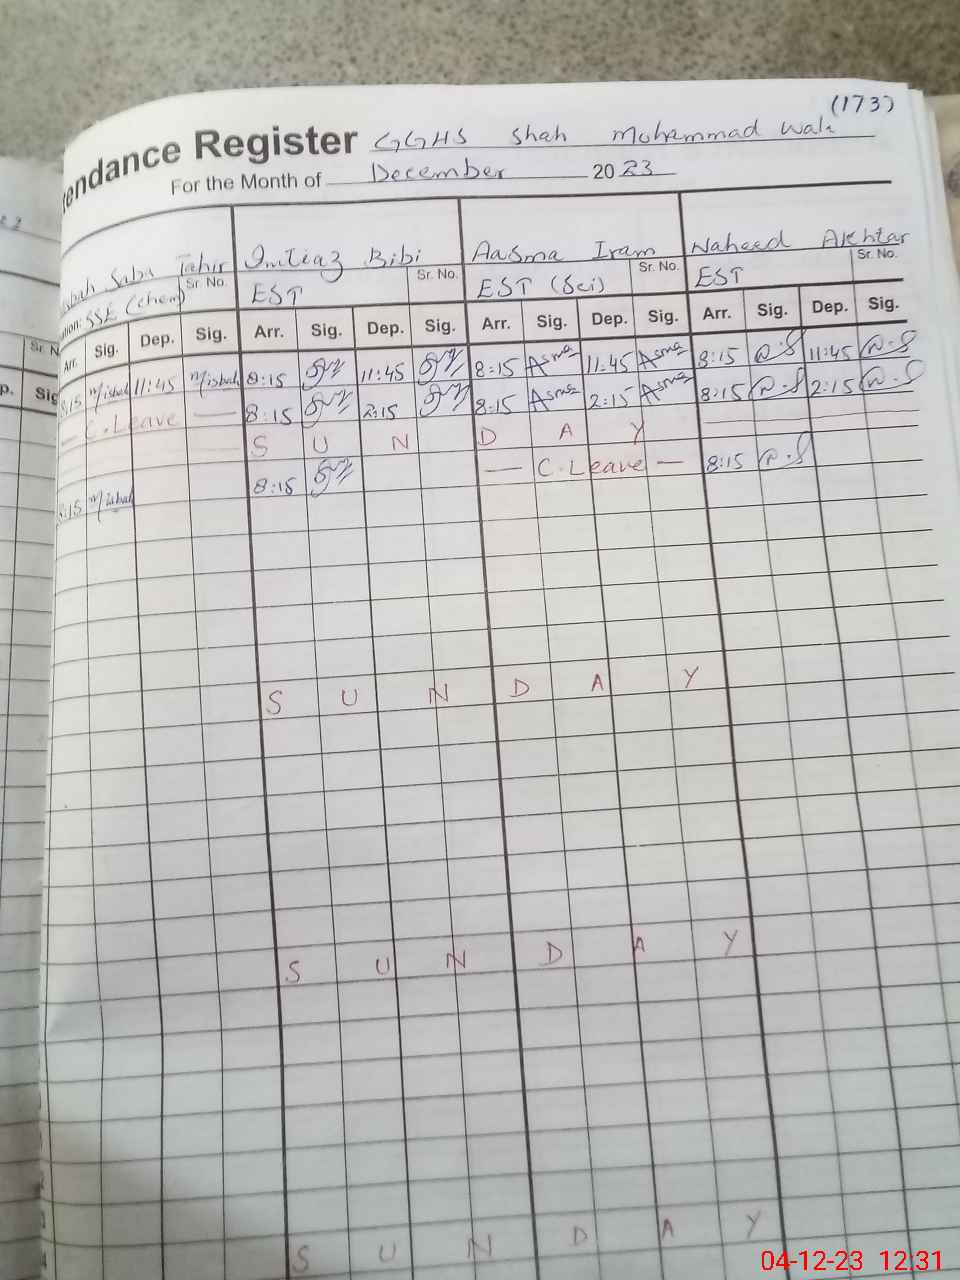 (173)
tendance Register GGHS Shah Mohammad Wala
For the Month of December 2023
isbah Saba Tahir Imtiaz Bibi Aasma Iram Naheed Akhtar
Sr. No. Sr. No. Sr. No. Sr. No.
tion: SSE (chem) EST EST (Sci) EST
Arr. Sig. Dep. Sig. Arr. Sig. Dep. Sig. Arr. Sig. Dep. Sig. Arr. Sig. Dep. Sig.
8:15 Misbah 11:45 Misbah 8:15 11:45 8:15 Asma 11:45 Asma 8:15 11:45
— C. Leave — 8:15 2:15 8:15 Asma 2:15 Asma 8:15 2:15
S U N D A Y
8:15 Misbah 8:15 — C. Leave — 8:15
S U N D A Y
S U N D A Y
S U N D A Y
04-12-23 12:31